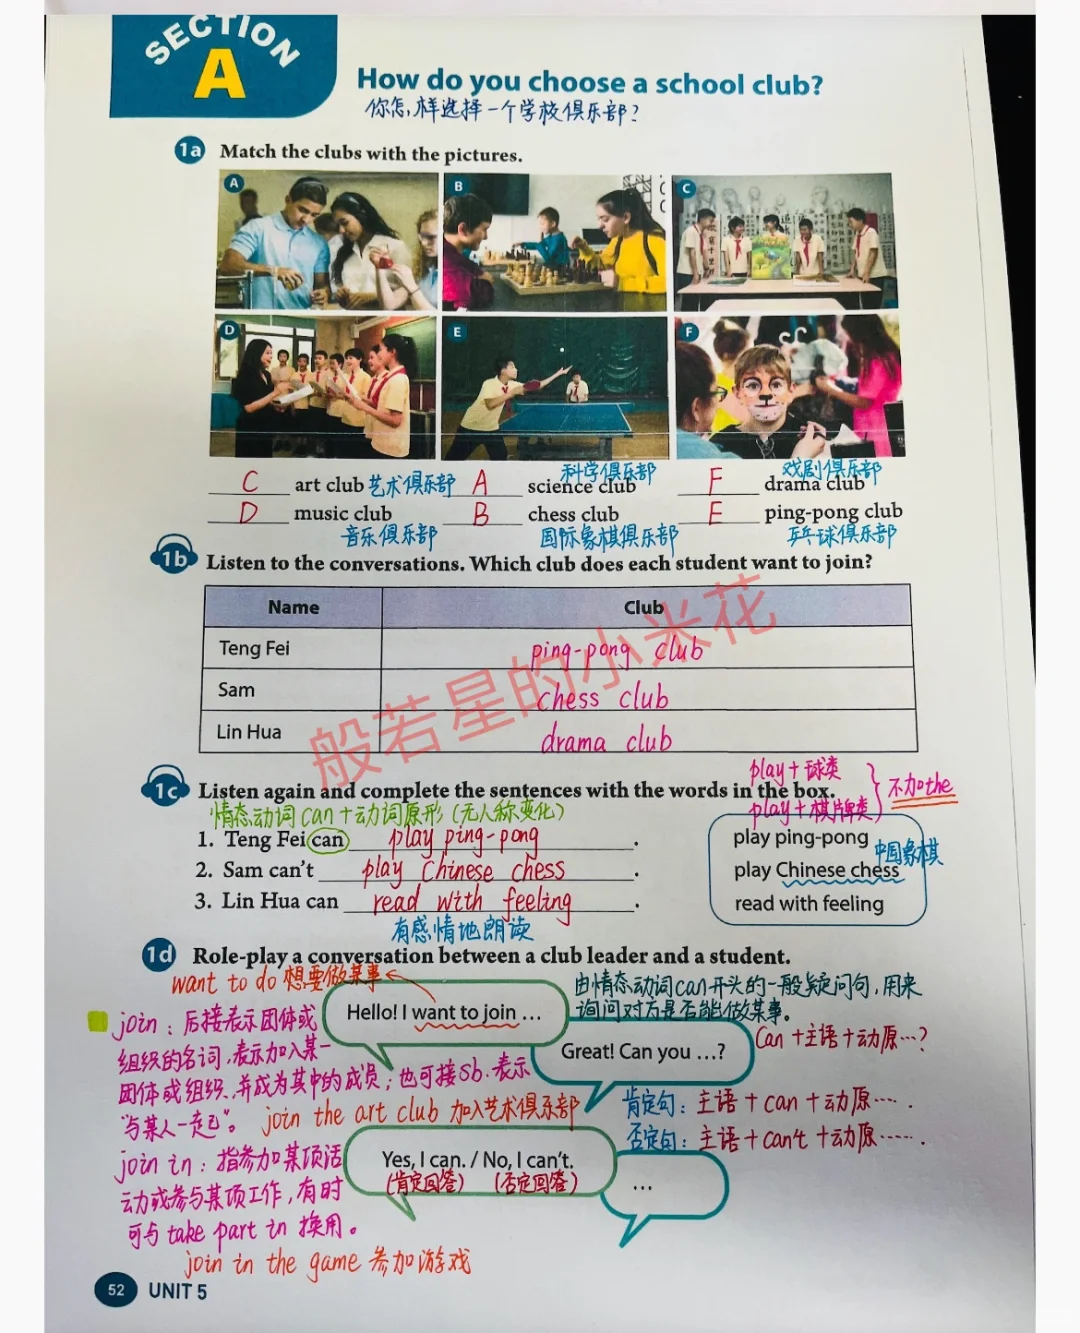 SECTION
A
How do you choose a school club?
你怎样选择一个学校俱乐部？
1a Match the clubs with the pictures.
A
B
C
D
E
F
C art club 艺术俱乐部 A science club 科学俱乐部 F drama club 戏剧俱乐部
D music club B chess club E ping-pong club
音乐俱乐部 国际象棋俱乐部 乒乓球俱乐部
1b Listen to the conversations. Which club does each student want to join?
Name Club
Teng Fei ping-pong club
Sam chess club
Lin Hua drama club
般若星的小米花
play+球类
play+棋牌类
不加the
1c Listen again and complete the sentences with the words in the box.
情态动词can+动词原形(无人称变化)
1. Teng Fei can play ping-pong.
2. Sam can't play Chinese chess.
3. Lin Hua can read with feeling.
有感情地朗读
play ping-pong
中国象棋
play Chinese chess
read with feeling
1d Role-play a conversation between a club leader and a student.
want to do 想要做某事
Hello! I want to join ...
由情态动词can开头的一般疑问句,用来
询问对方是否能做某事。
Great! Can you ...?
Can+主语+动原…?
join：后接表示团体或
组织的名词,表示加入某一
团体或组织,并成为其中的成员；也可接sb.表示
"与某人一起"。
join the art club 加入艺术俱乐部
肯定句：主语+can+动原….
否定句：主语+can't+动原…….
Yes, I can. / No, I can't.
(肯定回答) (否定回答)
...
join in：指参加某项活
动或参与某项工作,有时
可与take part in 换用。
join in the game 参加游戏
52 UNIT 5